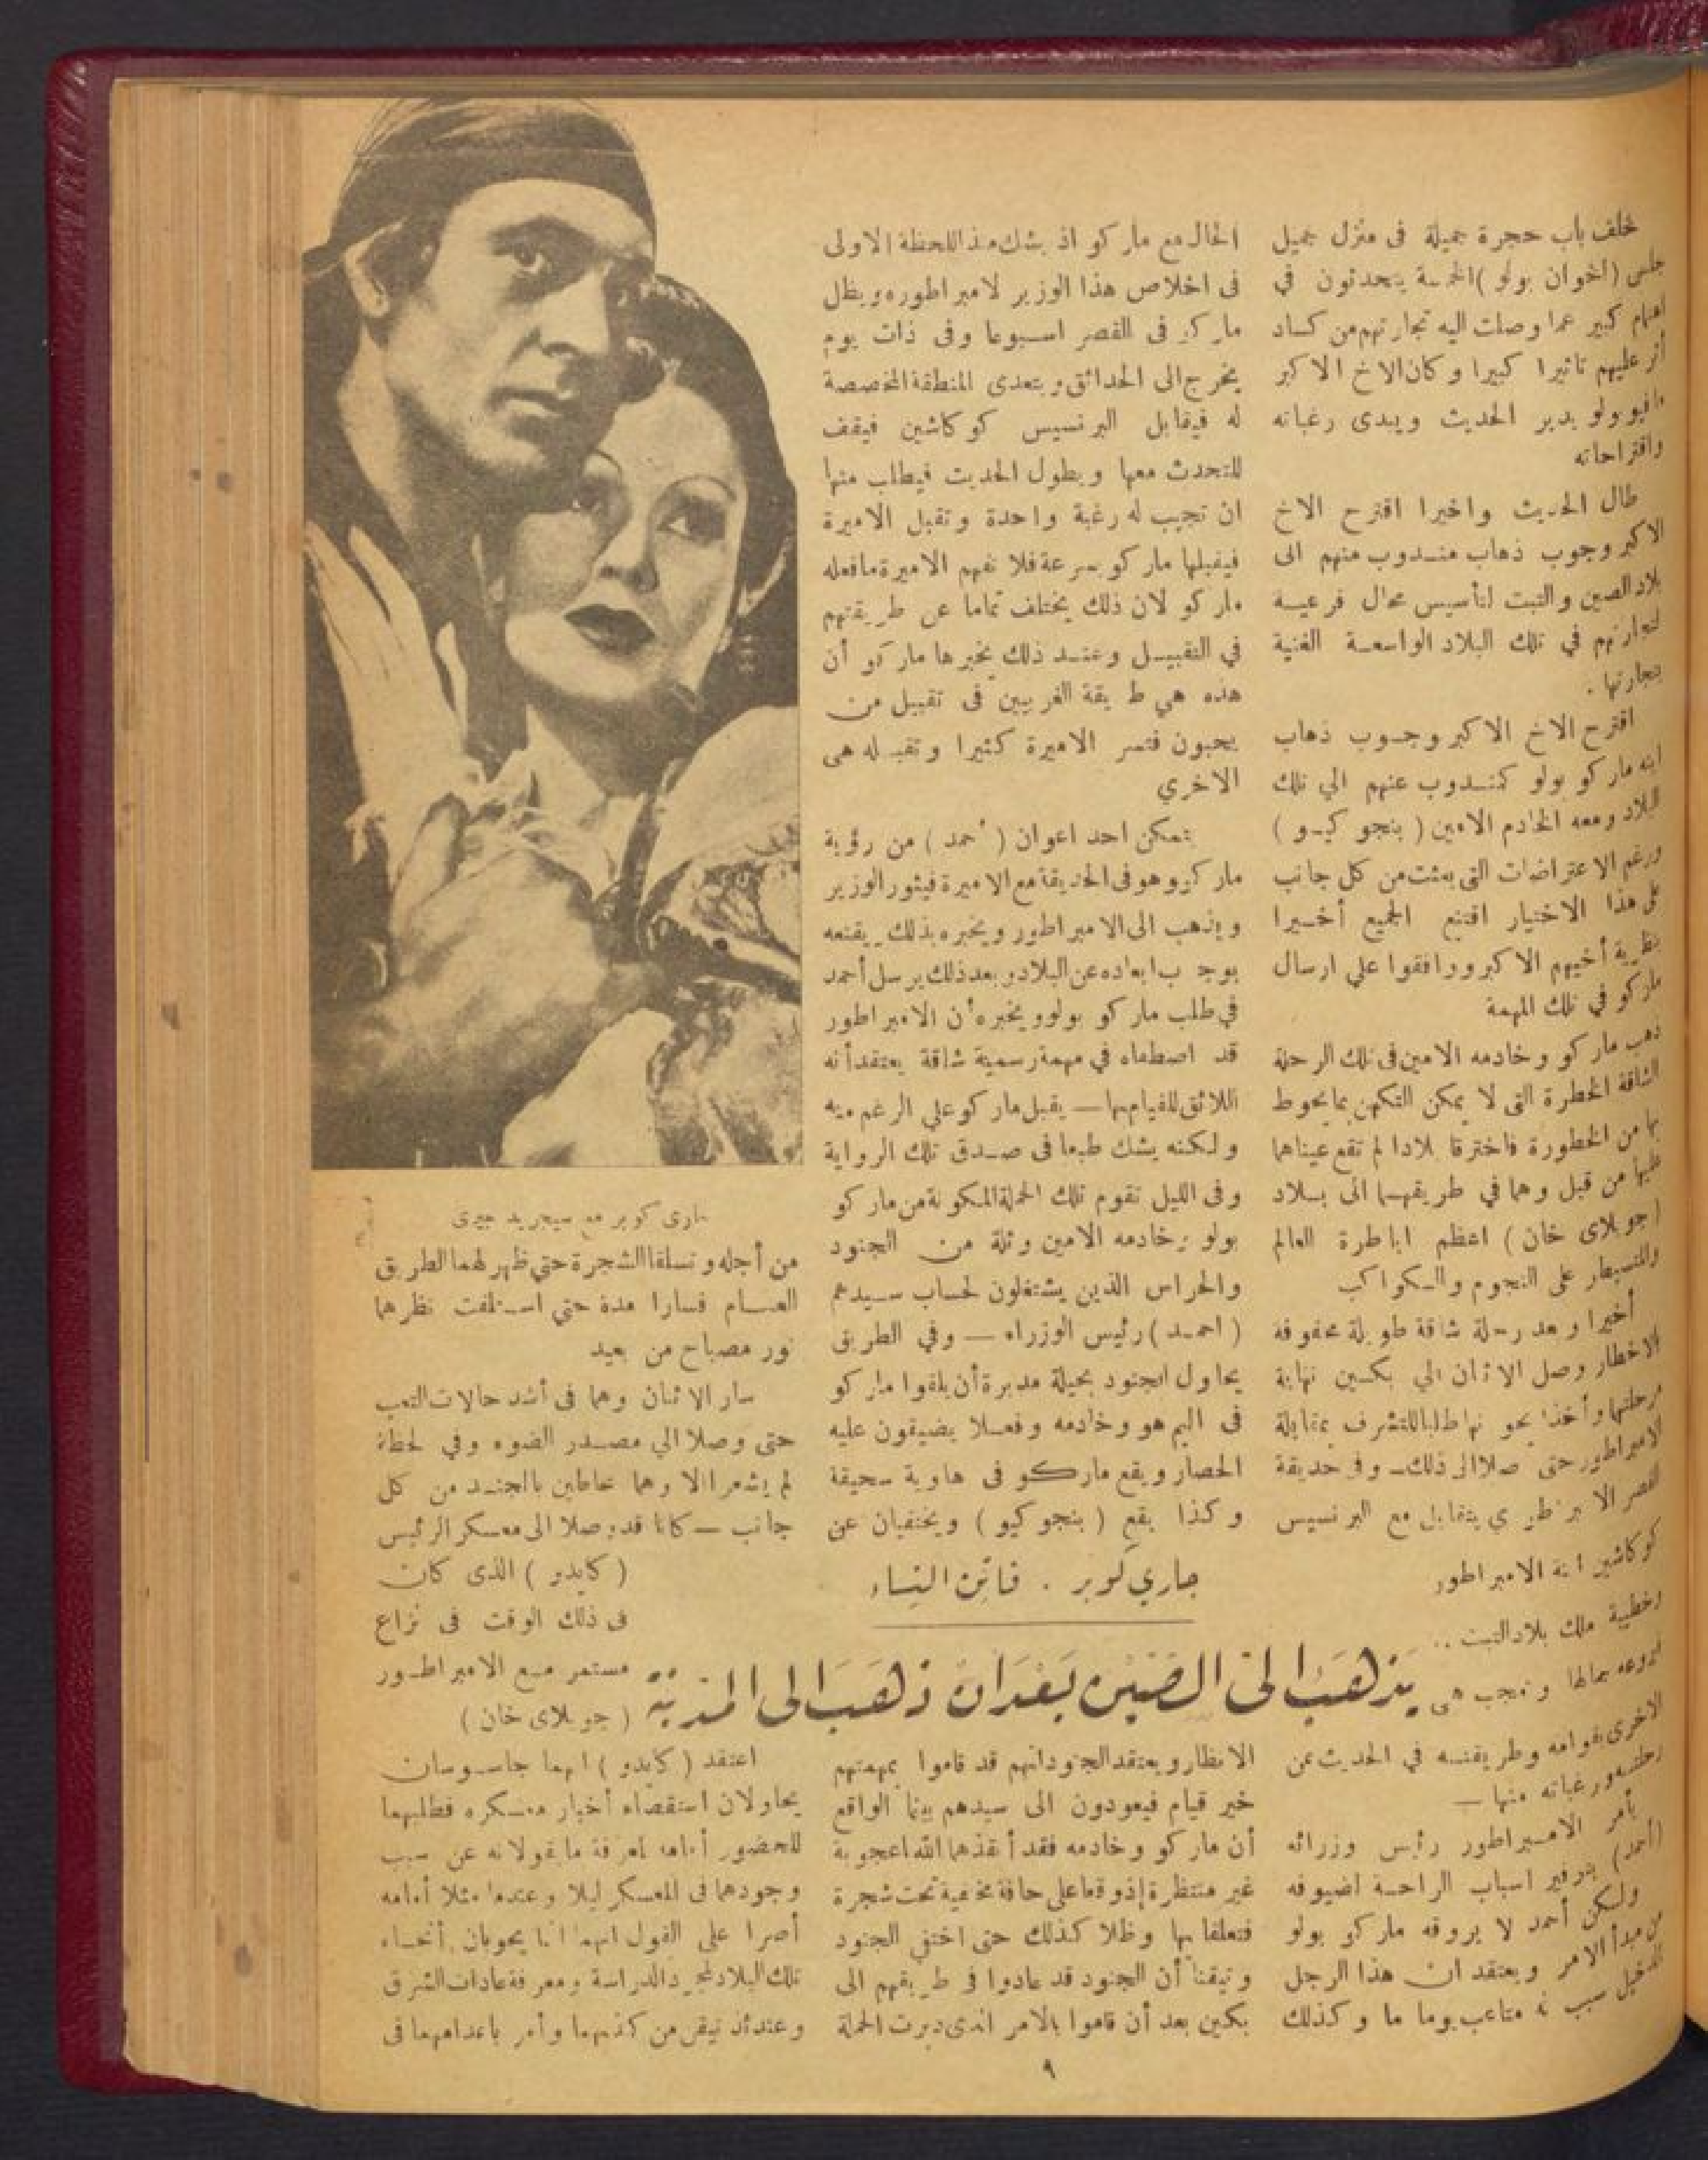 خلف باب حجرة جميلة فى منزل جميل
جلس (اخوان بولو) الخمسة يتحدثون في
اهتمام كبير عما وصلت اليه تجارتهم من كساد
أثر عليهم تاثيرا كبيرا وكان الاخ الاكبر
مافيو ولو يدير الحديث ويبدى رغباته
واقتراحاته
طال الحديث واخيرا اقترح الاخ
الاكبر وجوب ذهاب منــدوب منهم الى
بلاد الصين والتبت لتأسيس محال فرعيــة
لتجارتهم في تلك البلاد الواسعــة الغنية
بتجارتها .
اقترح الاخ الاكبر وجــوب ذهاب
ابنه ماركو بولو كمنــدوب عنهم الي تلك
البلاد ومعه الخادم الامين ( بنجو كيــو )
ورغم الاعتراضات التى بعثت من كل جانب
على هذا الاختيار اقتنع الجميع أخــيرا
بنظرية أخيهم الاكبر ووافقوا علي ارسال
ماركو في تلك المهمة
ذهب ماركو وخادمه الامين فى تلك الرحلة
الشاقة الخطرة التى لا يمكن التكهن بما يحوط
بها من الخطورة فاخترقا بلادا لم تقع عيناهما
عليها من قبل وهما في طريقهــما الى بــلاد
(جوبلاى خان) اعظم اباطرة العالم
والمسيطر على النجوم والــكواكب
أخيرا وبعد رحلة شاقة طويلة محفوفة
بالاخطار وصل الاثنان الي بكــين نهاية
رحلتهما وأخذا نحو نها طلبا للتشرف بمقابلة
الامبراطور حتى وصلا الى ذلك ــ وفى حديقة
القصر الامبراطورى يتقابل مع البرنسيس
كوكاشين ابنة الامبراطور
وخطيبة ملك بلاد التبت ..
فيروعه جمالها وتعجب هى
الاخرى بقوامه وطريقتــه في الحديث عن
رحلتــه ورغباته منها ــ
يأمر الامــبراطور رئيس وزرائه
(أحمد) بتوفير اسباب الراحــة لضيوفه
ولــكن أحمد لا يروقه ماركو بولو
من مبدأ الامر ويعتقد ان هذا الرجل
الدخيل سبب له متاعب يوما ما وكذلك
الحال مع ماركو اذ يشك منذ اللحظة الاولى
فى اخلاص هذا الوزير لامبراطوره ويظل
ماركو فى القصر اســبوعا وفى ذات يوم
يخرج الى الحدائق ويتعدى المنطقة المخصصة
له فيقابل البرنسيس كوكاشين فيقف
للتحدث معها ويطول الحديث فيطلب منها
ان تجيب له رغبة واحدة وتقبل الاميرة
فيقبلها ماركو بسرعة فلا تفهم الاميرة مافعله
ماركو لان ذلك يختلف تماما عن طريقتهم
في التقبيــل وعنــد ذلك يخبرها ماركو أن
هذه هي طريقة الغربيين فى تقبيل من
يحبون فتسر الاميرة كثيرا وتقبله هى
الاخري
يتمكن احد اعوان (أحمد) من رؤية
ماركو وهو فى الحديقة مع الاميرة فيثور الوزير
ويذهب الى الامبراطور ويخبره بذلك ويقنعه
بوجوب ابعاده عن البلاد وبعد ذلك يرسل أحمد
في طلب ماركو بولو ويخبره أن الامبراطور
قد اصطفاه في مهمة رسمية شاقة يعتقد أنه
اللائق للقيام بها ــ يقبل ماركو علي الرغم منه
ولكنه يشك طبعا فى صــدق تلك الرواية
وفى الليل تقوم تلك الحملة المكونة من ماركو
بولو وخادمه الامين وثلة من الجنود
والحراس الذين يشتغلون لحساب ســيدهم
( احمــد ) رئيس الوزراء ــ وفي الطريق
يحاول الجنود بحيلة مدبرة أن يلقوا ماركو
فى اليم هو وخادمه وفعــلا يضيقون عليه
الحصار ويقع ماركــو فى هاوية سحيقة
وكذا يقع ( بنجو كيو ) ويختفيان عن
جاري كوبر . فاتن النساء
يذهب الى الصين بعد ان ذهب الى المدينة
الانظار ويعتقد الجنود انهم قد قاموا بمهمتهم
خير قيام فيعودون الى سيدهم بينما الواقع
أن ماركو وخادمه فقد أنقذهما الله اعجوبة
غير منتظرة إذ وقعا على حافة مخفية تحت شجرة
فتعلقا بها وظلا كذلك حتى اختفى الجنود
وتيقنا أن الجنود قد عادوا فى طريقهم الى
بكين بعد أن قاموا بالامر الذى دبرت الحملة
جارى كوبر مع سيجريد جيرى
من أجله وتسلقا الشجرة حتى ظهر لهما الطريق
العــام فسارا مدة حتى اســتلفت نظرهما
نور مصباح من بعيد
سار الاثنان وهما فى أشد حالات التعب
حتى وصلا الي مصــدر الضوء وفي لحظة
لم يشعرا الا وهما محاطين بالجنــد من كل
جانب ــ كانا قد وصلا الى معسكر الرئيس
( كايدو ) الذى كان
فى ذلك الوقت فى نزاع
مستمر مــع الامبراطــور
( جوبلاى خان )
اعتقد ( كايدو ) انهما جاســوسان
يحاولان استقصاء أخبار معسكره فطلبهما
للحضور أمامه لمعرفة ما يقولانه عن سبب
وجودهما فى المعسكر ليلا وعندما مثلا أمامه
أصرا على القول انهما انما يجوبان أنحــاء
تلك البلاد لمجرد الدراسة ومعرفة عادات الشرق
وعندئذ تيقن من كذبهما وأمر باعدامهما فى
٩